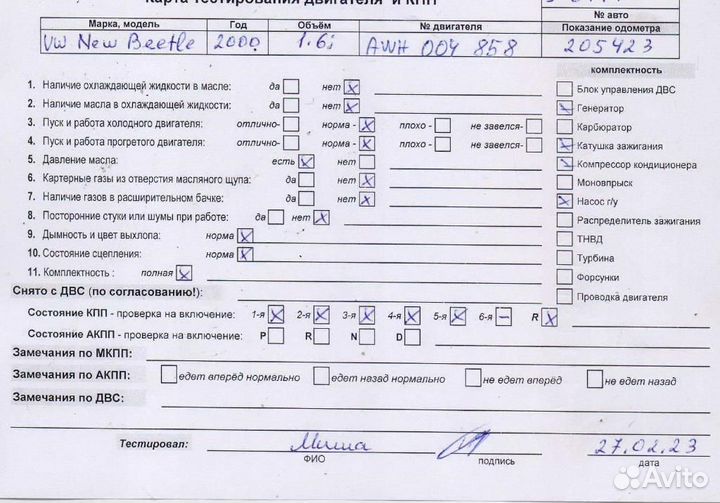 Карта тестирования двигателя и КПП
№ авто
Марка, модель Год Объём № двигателя Показание одометра
VW New Beetle 2000 1.6i AWH 004 858 205423
комплектность
1. Наличие охлаждающей жидкости в масле: да нет x
Блок управления ДВС
2. Наличие масла в охлаждающей жидкости: да нет x
Генератор
3. Пуск и работа холодного двигателя: отлично- норма - x плохо - не завелся-
Карбюратор
4. Пуск и работа прогретого двигателя: отлично- норма - x плохо - не завелся-
Катушка зажигания
5. Давление масла: есть x нет
Компрессор кондиционера
6. Картерные газы из отверстия масляного щупа: да нет x
Моновпрыск
7. Наличие газов в расширительном бачке: да нет x
Насос г/у
8. Посторонние стуки или шумы при работе: да нет x
Распределитель зажигания
9. Дымность и цвет выхлопа: норма x
ТНВД
10. Состояние сцепления: норма x
Турбина
11. Комплектность : полная x
Форсунки
Снято с ДВС (по согласованию!):
Проводка двигателя
Состояние КПП - проверка на включение: 1-я x 2-я x 3-я x 4-я x 5-я x 6-я – R x
Состояние АКПП - проверка на включение: P R N D
Замечания по МКПП:
Замечания по АКПП: едет вперёд нормально едет назад нормально не едет вперёд не едет назад
Замечания по ДВС:
Тестировал: Миша 27.02.23
ФИО подпись дата
Avito